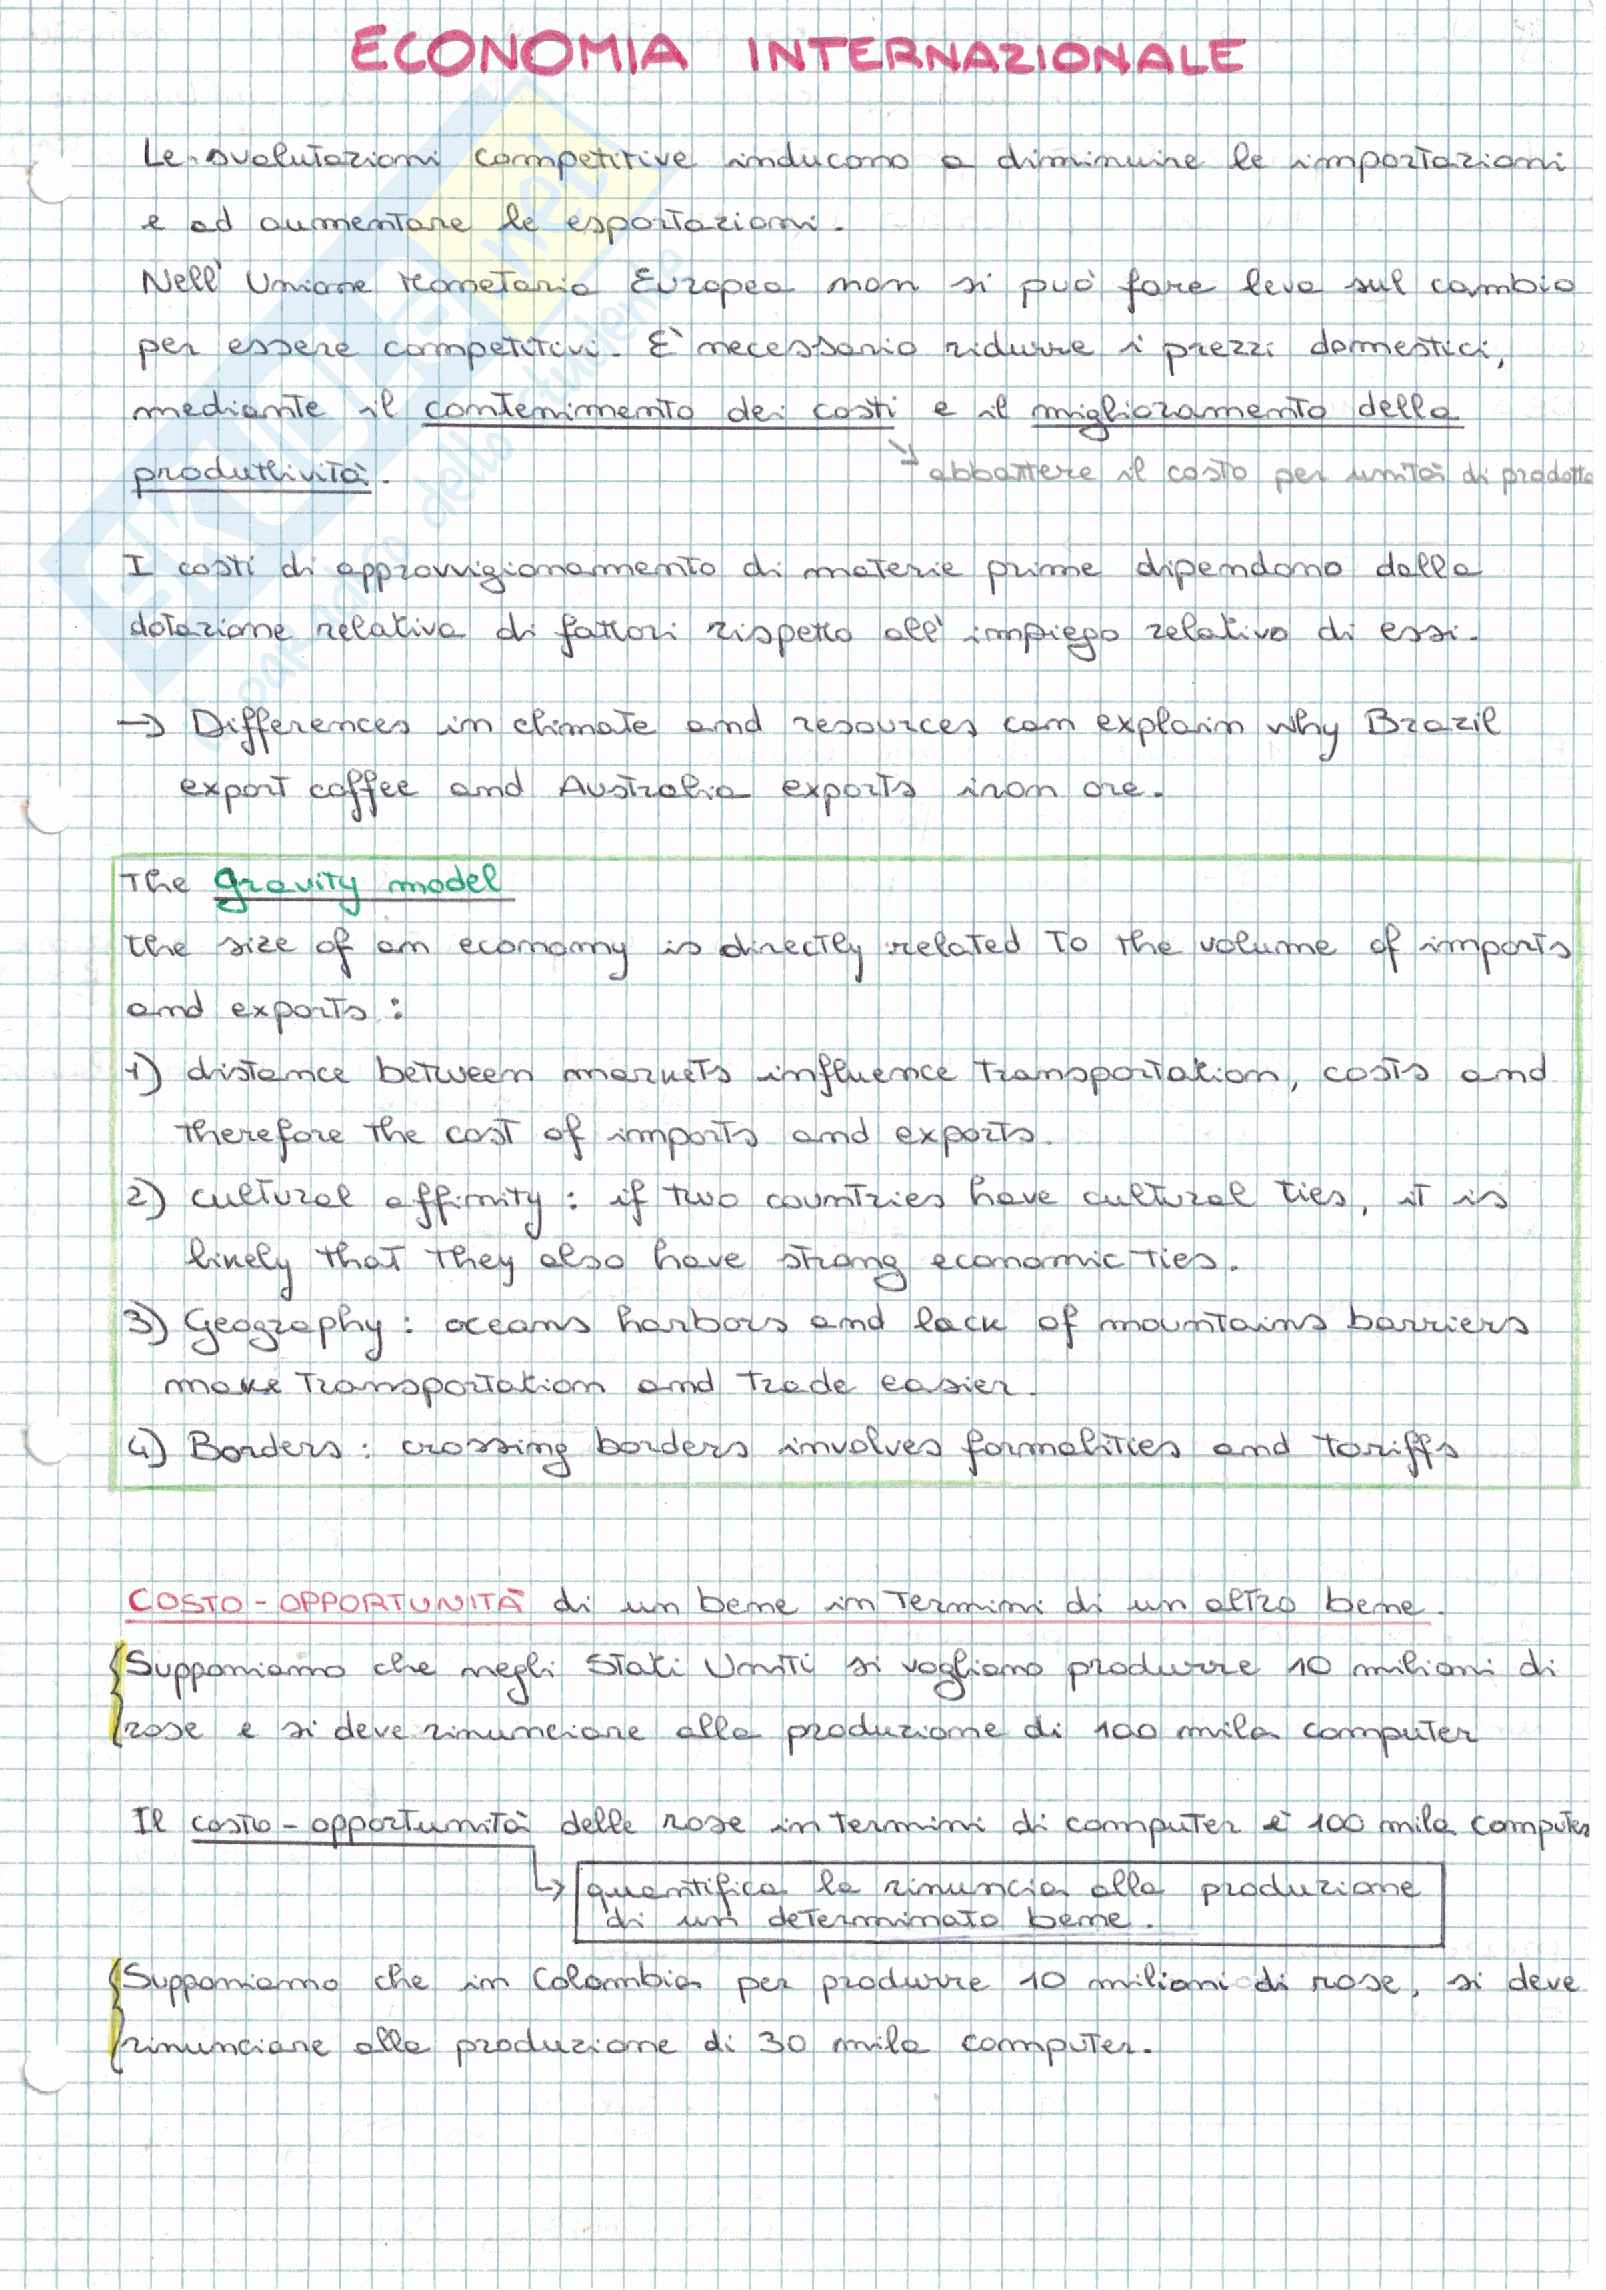 ECONOMIA INTERNAZIONALE
Le svalutazioni competitive inducono a diminuire le importazioni
e ad aumentare le esportazioni.
Nell' Unione Monetaria Europea non si può fare leva sul cambio
per essere competitivi. È necessario ridurre i prezzi domestici,
mediante il contenimento dei costi e il miglioramento della
produttività.
→ abbattere il costo per unità di prodotto
I costi di approvvigionamento di materie prime dipendono dalla
dotazione relativa di fattori rispetto all' impiego relativo di essi.
→ Differences in climate and resources can explain why Brazil
export coffee and Australia exports iron ore.
The gravity model
the size of an economy is directly related to the volume of imports
and exports:
1) distance between markets influence transportation, costs and
therefore the cost of imports and exports.
2) cultural affinity: if two countries have cultural ties, it is
likely that they also have strong economic ties.
3) Geography: oceans harbors and lack of mountains barriers
make transportation and trade easier.
4) Borders: crossing borders involves formalities and tariffs
COSTO-OPPORTUNITÀ di un bene in termini di un altro bene.
Supponiamo che negli Stati Uniti si vogliano produrre 10 milioni di
rose e si deve rinunciare alla produzione di 100 mila computer
Il costo-opportunità delle rose in termini di computer è 100 mila computer
↳ quantifica la rinuncia alla produzione
di un determinato bene.
Supponiamo che in Colombia per produrre 10 milioni di rose, si deve
rinunciare alla produzione di 30 mila computer.
SKUOLA.net
il paradiso dello studente